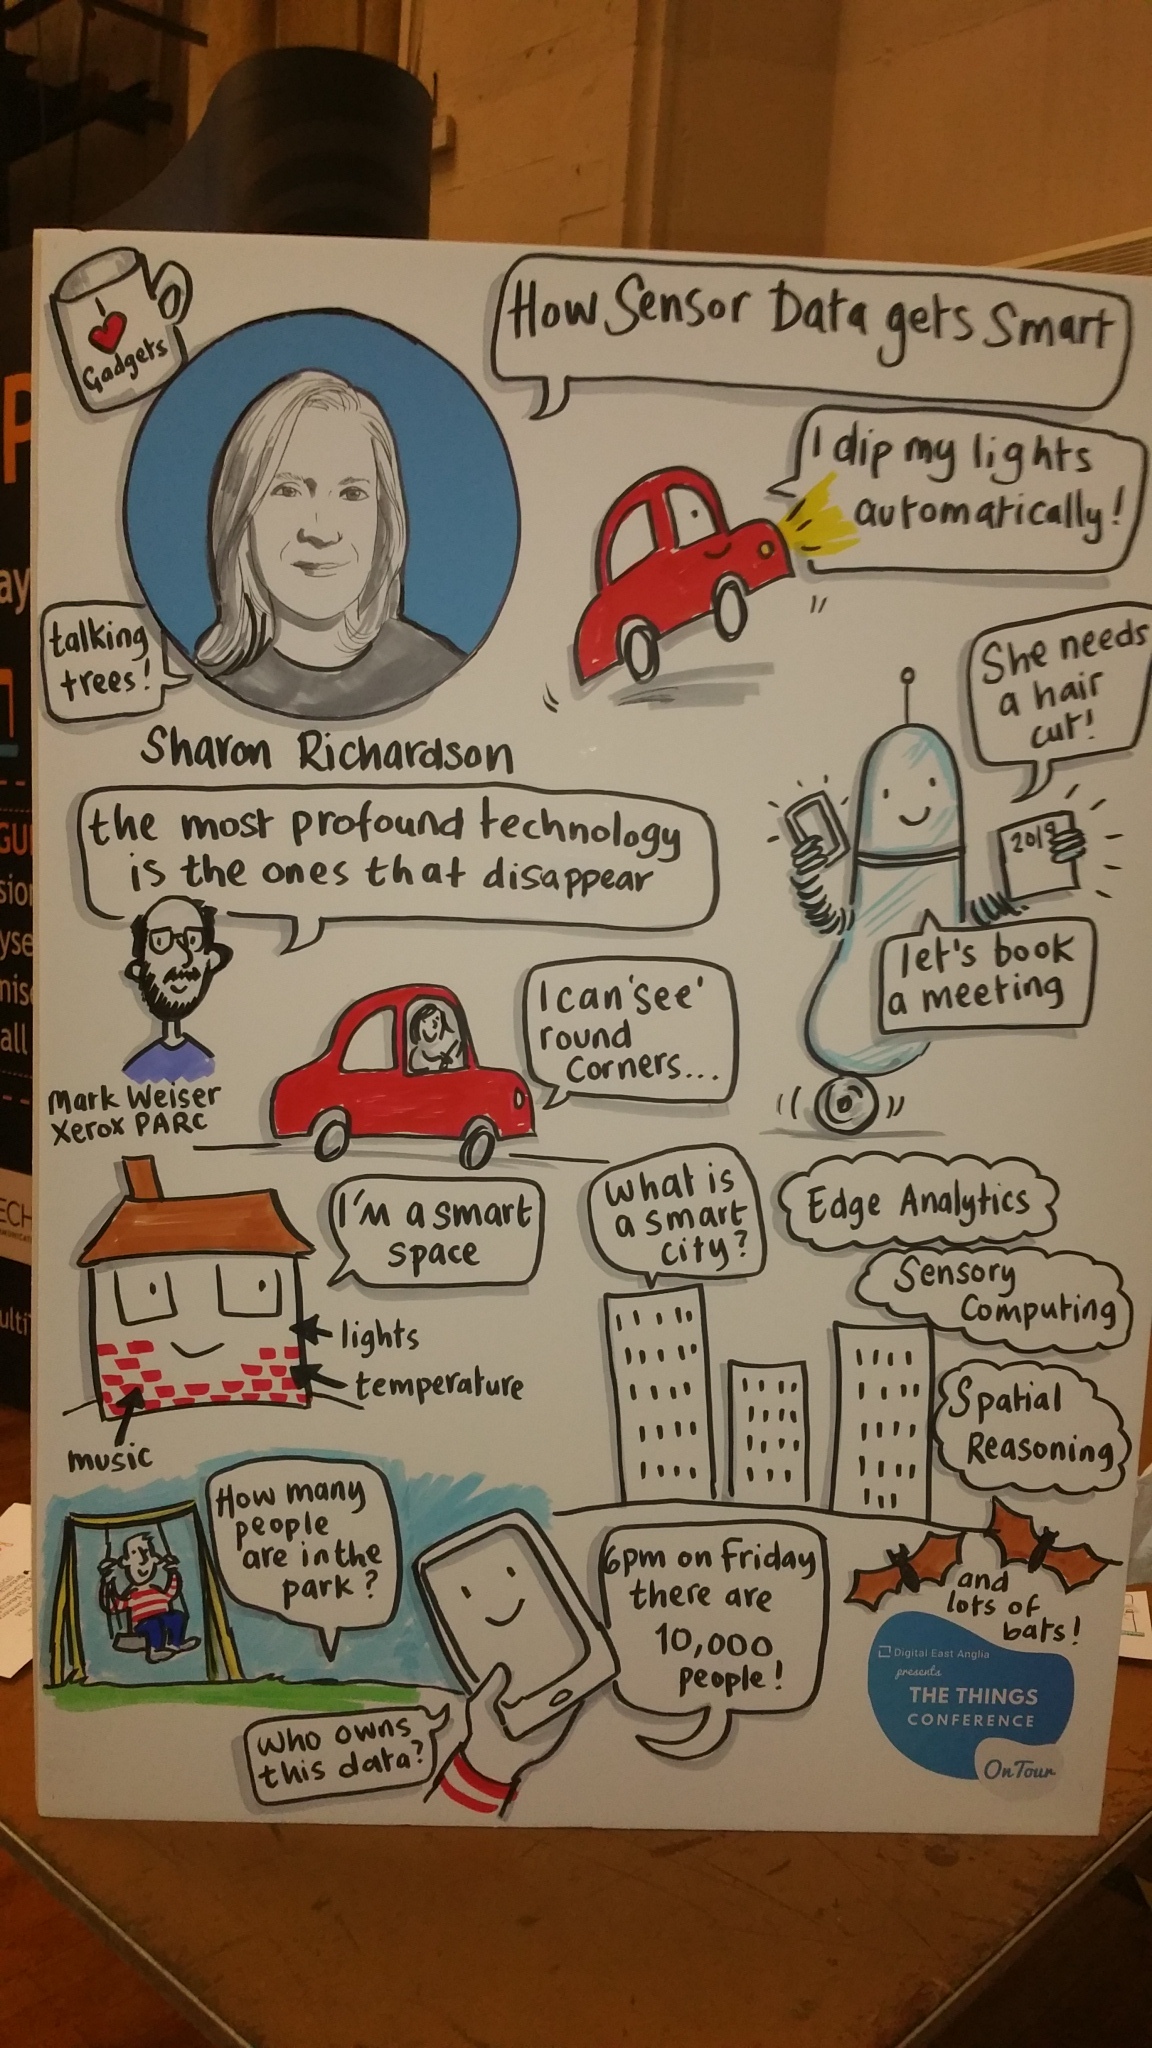 I
Gadgets
How Sensor Data gets Smart
I dip my lights
automatically!
talking
trees!
Sharon Richardson
She needs
a hair
cut!
2018
let's book
a meeting
the most profound technology
is the ones that disappear
Mark Weiser
Xerox PARC
I can 'see'
round
corners...
I'm a smart
space
lights
temperature
music
What is
a smart
city?
Edge Analytics
Sensory
Computing
Spatial
Reasoning
How many
people
are in the
park?
6pm on Friday
there are
10,000
people!
who owns
this data?
and
lots of
bats!
Digital East Anglia
presents
THE THINGS
CONFERENCE
On Tour